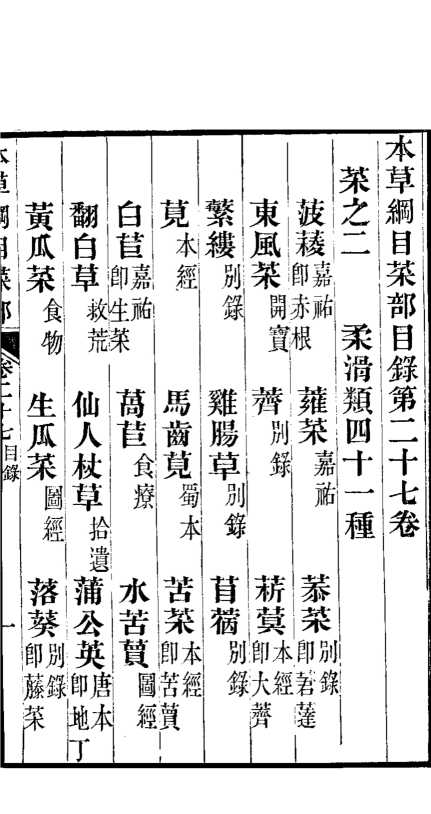 本草綱目菜部目錄第二十七卷
菜之二　柔滑類四十一種
菠薐嘉祐即赤根　蕹菜嘉祐　菾菜別錄即莙薘
東風菜開寶　薺別錄　菥蓂本經即大薺
蘩縷別錄　雞腸草別錄　苜蓿別錄
莧本經　馬齒莧蜀本　苦菜本經即苦蕒
白苣嘉祐即生菜　萵苣食療　水苦蕒圖經
翻白草救荒　仙人杖草拾遺　蒲公英唐本即地丁
黃瓜菜食物　生瓜菜圖經　落葵別錄即藤菜
本草綱目菜部　卷二十七目錄　一